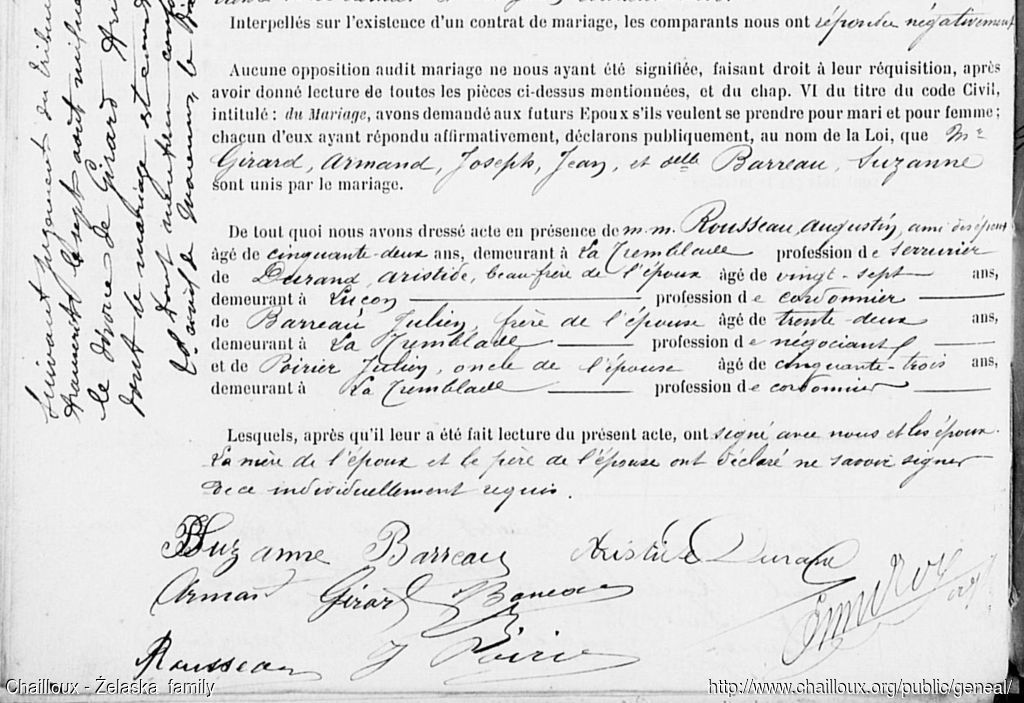 Interpellés sur l'existence d'un contrat de mariage, les comparants nous ont répondu négativement
Aucune opposition audit mariage ne nous ayant été signifiée, faisant droit à leur réquisition, après
avoir donné lecture de toutes les pièces ci-dessus mentionnées, et du chap. VI du titre du code Civil,
intitulé : du Mariage, avons demandé aux futurs Epoux s'ils veulent se prendre pour mari et pour femme ;
chaçun d'eux ayant répondu affirmativement, déclarons publiquement, au nom de la Loi, que Mr
Girard, Armand, Joseph, Jean, et delle Barreau, Suzanne
sont unis par le mariage.
De tout quoi nous avons dressé acte en présence de m.m. Rousseau, Augustin, ami
âgé de cinquante-deux ans, demeurant à La Tremblade profession de serrurier
de Durand, Aristide, beau-frère de l'époux âgé de vingt-sept ans,
demeurant à Luçon profession de cordonnier
de Barreau Julien, frère de l'épouse âgé de trente-deux ans,
demeurant à La Tremblade profession de négociant
et de Poirier Julien, oncle de l'épouse âgé de cinquante-trois ans,
demeurant à La Tremblade profession de cordonnier
Lesquels, après qu'il leur a été fait lecture du présent acte, ont signé avec nous et les époux.
La mère de l'époux et le père de l'épouse ont déclaré ne savoir signer
de ce individuellement requis.
Suzanne Barreau Aristide Durand
Armand Girard Barreau
Rousseau J Poirier
Suivant jugement du
transcrit le sept août
le divorce de Girard
dont le mariage est
Chailloux - Želaska family
http://www.chailloux.org/public/geneal/